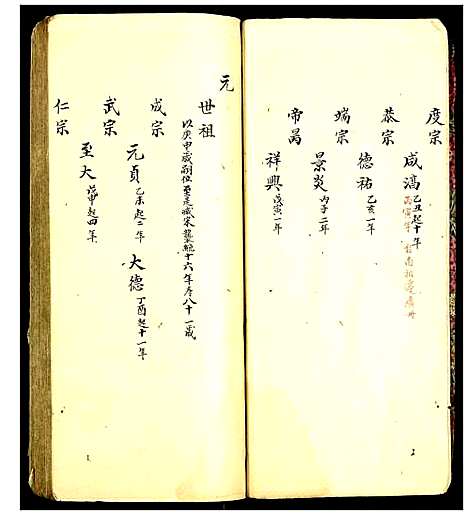 度宗
咸淳 乙丑起十年
恭宗
德祐 乙亥一年
端宗
景炎 丙子二年
帝昺
祥興 戊寅一年
2
元
世祖
以庚申歲嗣位至是滅宋
統十六年 八十一歲
成宗
元貞 乙未起二年 大德 丁酉起十一年
武宗
至大 戊申起四年
仁宗
1